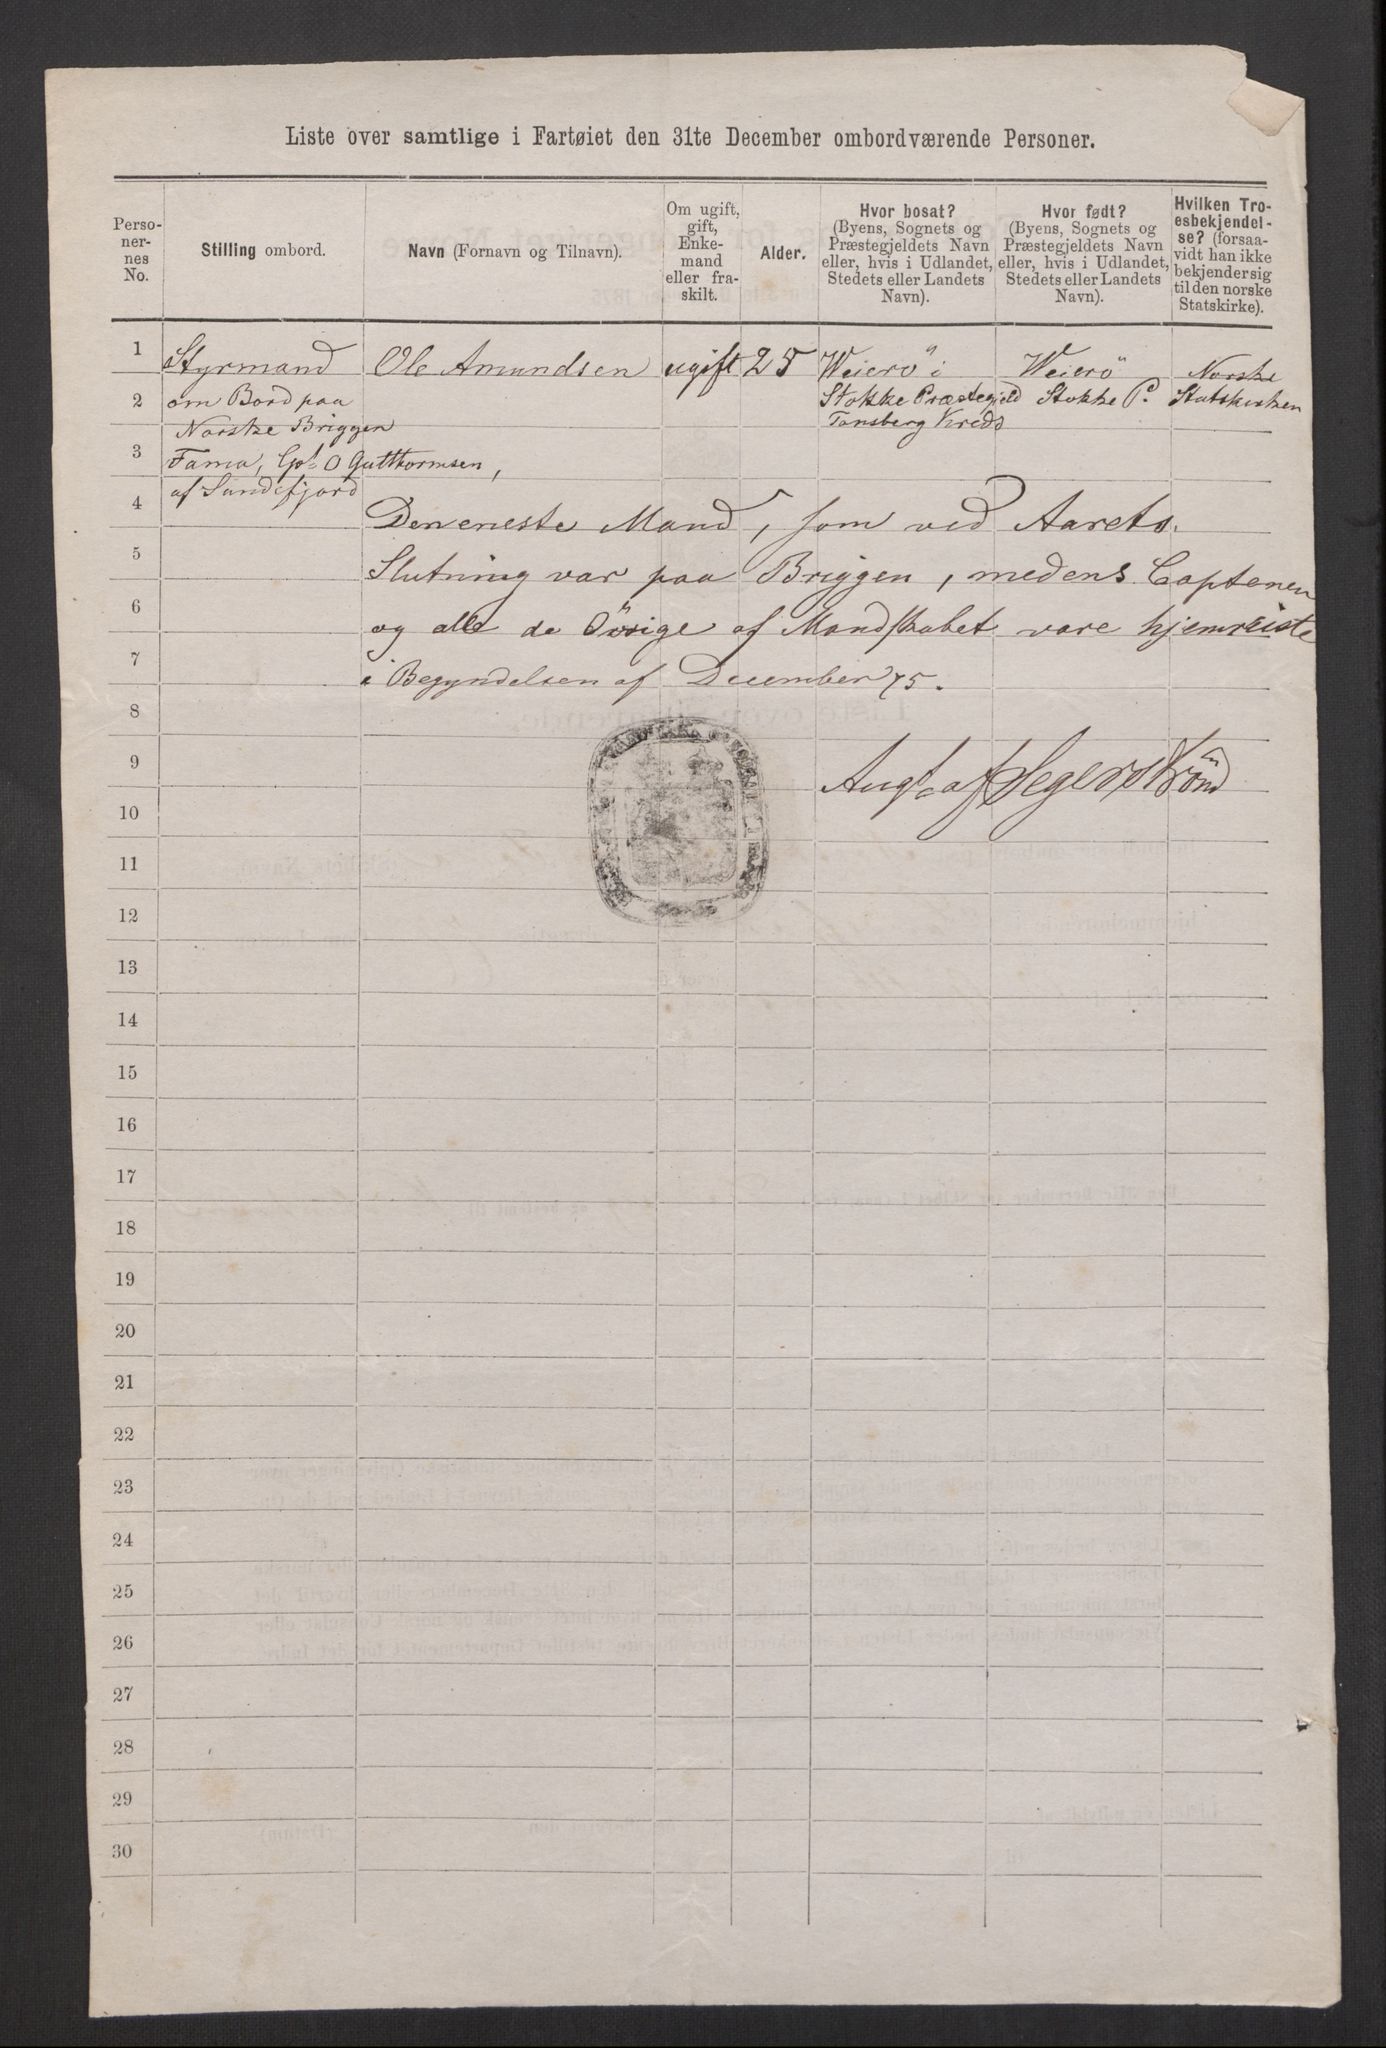 Liste over samtlige i Fartøiet den 31te December ombordværende Personer.
Perso-
ner-
nes
No.
Stilling ombord.
Navn (Fornavn og Tilnavn).
Om ugift,
gift,
Enke-
mand
eller fra-
skilt.
Alder.
Hvor bosat?
(Byens, Sognets og
Præstegjeldets Navn
eller, hvis i Udlandet,
Stedets eller Landets
Navn).
Hvor født?
(Byens, Sognets og
Præstegjeldets Navn
eller, hvis i Udlandet,
Stedets eller Landets
Navn).
Hvilken Tro-
esbekjendel-
se? (forsaa-
vidt han ikke
bekjender sig
til den norske
Statskirke).
1 Styrmand Ole Amundsen ugift 25 Weierö i Weierö Norske
2 om Bord paa Stokke Præstegjeld Stokke P. Statskirken
Norske Briggen Tønsberg Kreds
3 Fama, Cpt O Gutthormsen,
4 af Sandefjord
Den eneste Mand, som ved Aarets
5
Slutning var paa Briggen, medens Captenen
6
og alle de Övrige af Mandskabet vare hjemreiste
7
i Begyndelsen af December 75.
8
9
Augt af Segerström
10
11
12
13
14
15
16
17
18
19
20
21
22
23
24
25
26
27
28
29
30